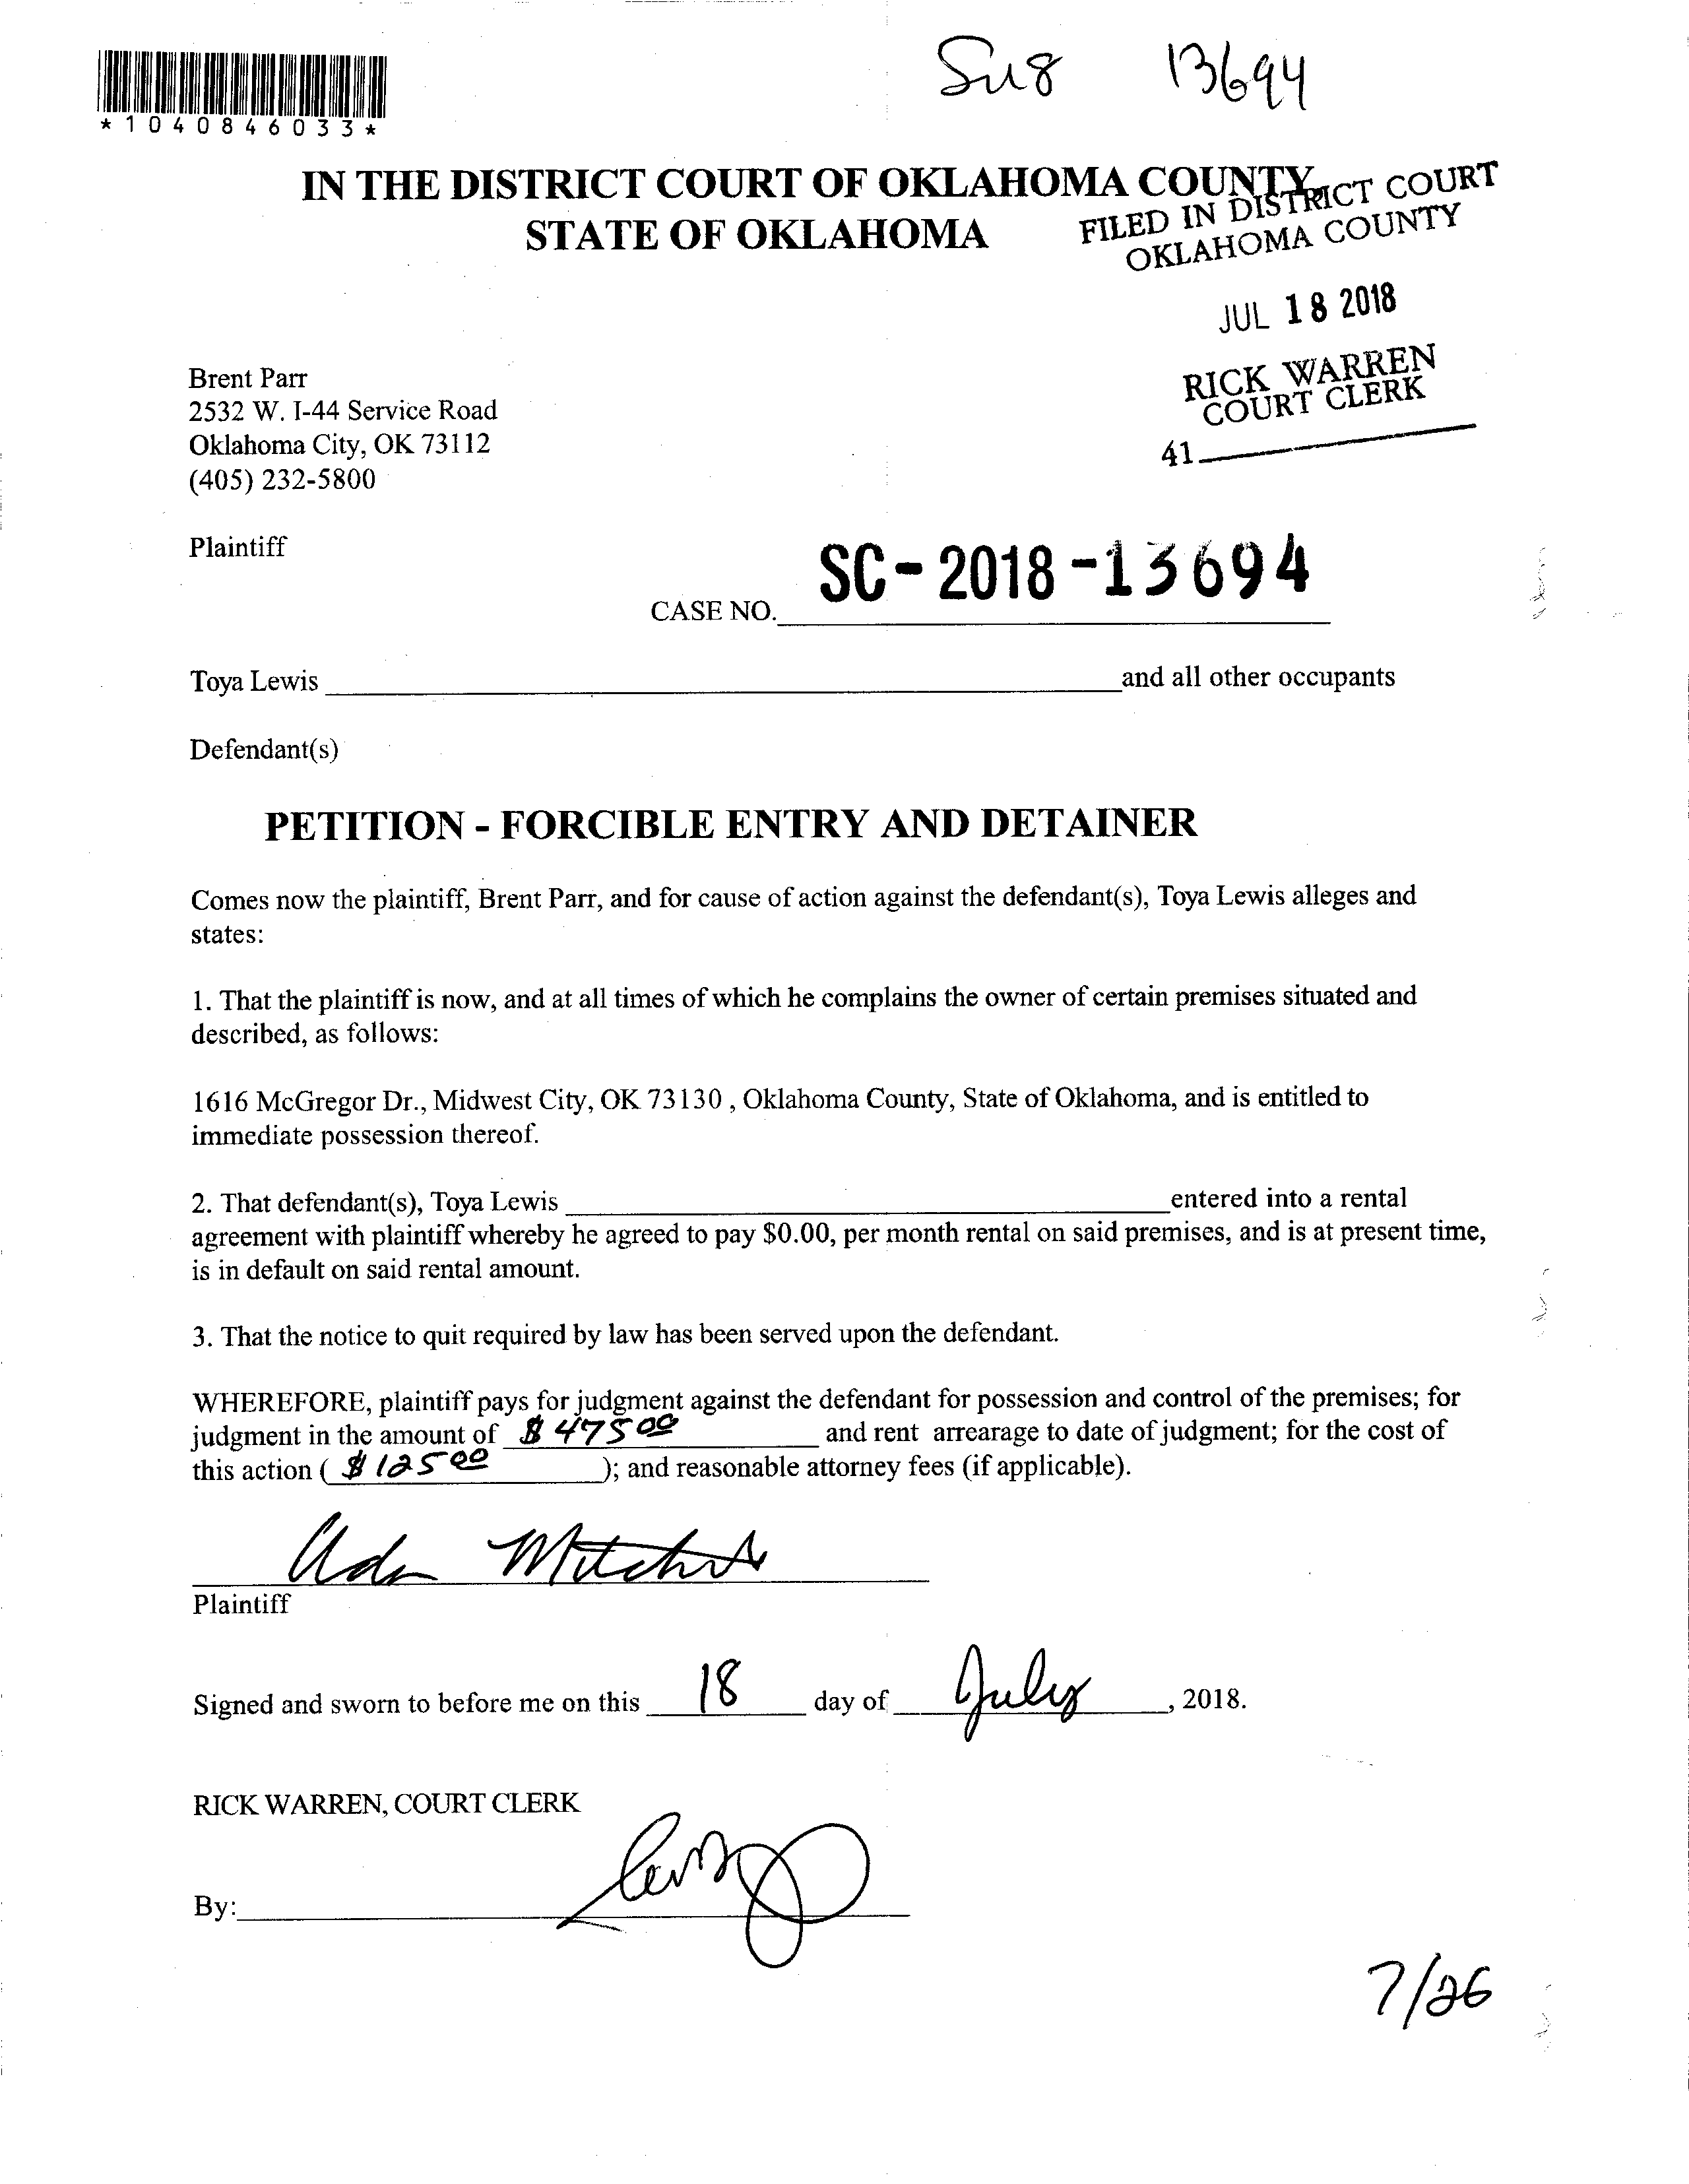 Su8 13694
*1040846033*
IN THE DISTRICT COURT OF OKLAHOMA COUNTY
STATE OF OKLAHOMA
FILED IN DISTRICT COURT
OKLAHOMA COUNTY
JUL 18 2018
RICK WARREN
COURT CLERK
41
Brent Parr
2532 W. I-44 Service Road
Oklahoma City, OK 73112
(405) 232-5800
Plaintiff
CASE NO. SC-2018-13694
Toya Lewis and all other occupants
Defendant(s)
PETITION - FORCIBLE ENTRY AND DETAINER
Comes now the plaintiff, Brent Parr, and for cause of action against the defendant(s), Toya Lewis alleges and
states:
1. That the plaintiff is now, and at all times of which he complains the owner of certain premises situated and
described, as follows:
1616 McGregor Dr., Midwest City, OK 73130 , Oklahoma County, State of Oklahoma, and is entitled to
immediate possession thereof.
2. That defendant(s), Toya Lewis entered into a rental
agreement with plaintiff whereby he agreed to pay $0.00, per month rental on said premises, and is at present time,
is in default on said rental amount.
3. That the notice to quit required by law has been served upon the defendant.
WHEREFORE, plaintiff pays for judgment against the defendant for possession and control of the premises; for
judgment in the amount of $ 475 00 and rent arrearage to date of judgment; for the cost of
this action ( $ 125 00 ); and reasonable attorney fees (if applicable).
Plaintiff
Signed and sworn to before me on this 18 day of July, 2018.
RICK WARREN, COURT CLERK
By:
7/26